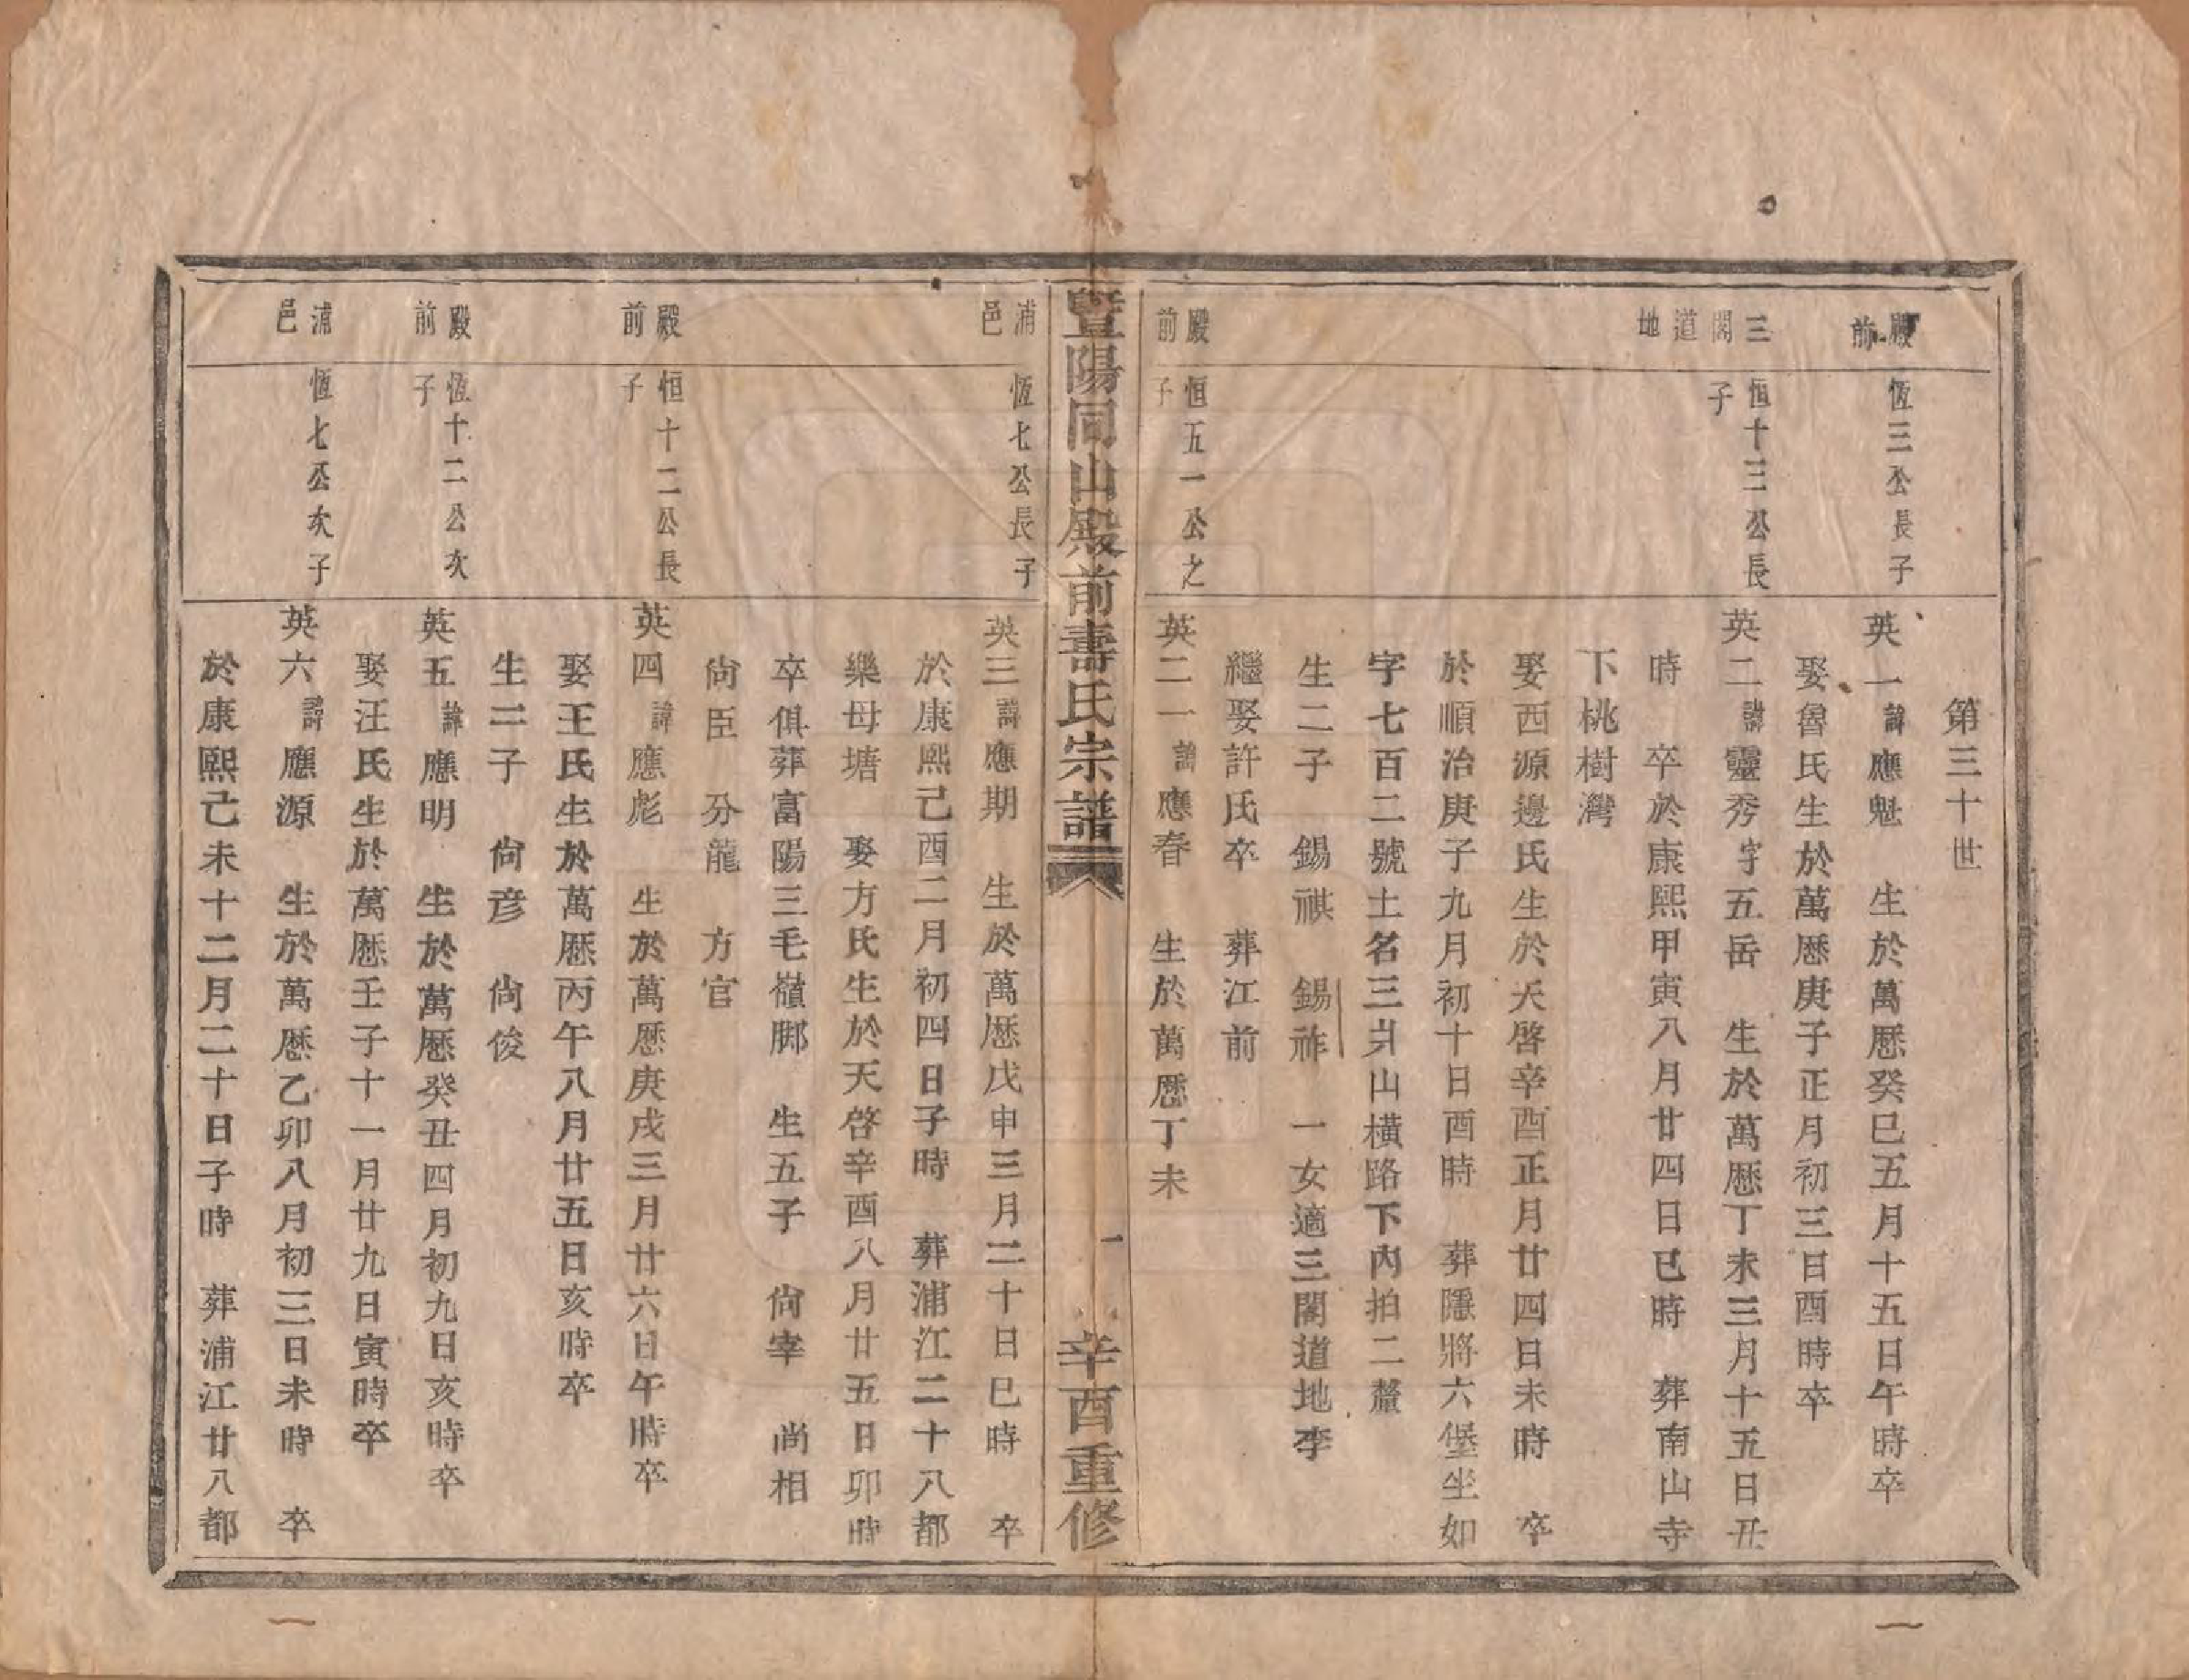 第三十世
殿前
恆三公長子
英一諱應魁　生於萬厯癸巳五月十五日午時卒
娶魯氏生於萬厯庚子正月初三日酉時卒
三閣道地
恒十三公長子
英二諱靈秀字五岳　生於萬厯丁未三月十五日丑
時　卒於康熙甲寅八月廿四日巳時　葬南山寺
下桃樹灣
娶西源邊氏生於天啓辛酉正月廿四日未時　卒
於順治庚子九月初十日酉時　葬隱將六堡坐如
字七百二號土名三爿山橫路下內拍二釐
生二子　錫祺　錫祚　一女適三閣道地李
繼娶許氏卒　葬江前
殿前
恒五一公之子
英二一諱應春　生於萬厯丁未
暨陽同山殿前壽氏宗譜
一
辛酉重修
浦邑
恆七公長子
英三諱應期　生於萬厯戊申三月二十日巳時　卒
於康熙己酉二月初四日子時　葬浦江二十八都
樂母塘　娶方氏生於天啓辛酉八月廿五日卯時
卒俱葬富陽三毛嶺腳　生五子　尙宰　尚相
尙臣　分龍　方官
殿前
恒十二公長子
英四諱應彪　生於萬厯庚戌三月廿六日午時卒
娶王氏生於萬厯丙午八月廿五日亥時卒
生二子　尙彦　尙俊
殿前
恆十二公次子
英五諱應明　生於萬厯癸丑四月初九日亥時卒
娶汪氏生於萬厯壬子十一月廿九日寅時卒
浦邑
恆七公次子
英六諱應源　生於萬厯乙卯八月初三日未時　卒
於康熙己未十二月二十日子時　葬浦江廿八都